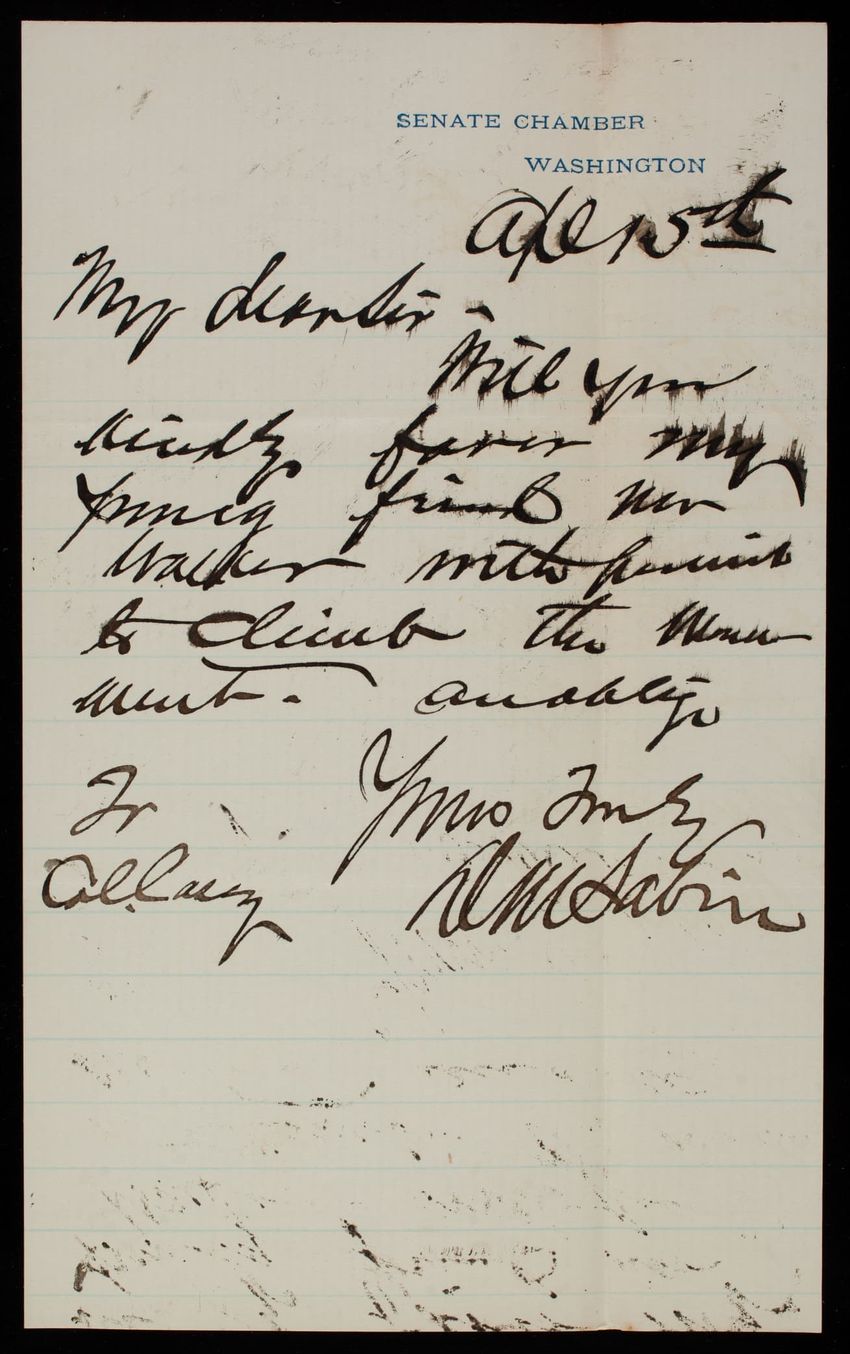 SENATE CHAMBER
WASHINGTON
Apl 15th
My dear Sir -
Will you
kindly favor my
young friend Mr
Walker with permit
to climb the Monu
ment - an oblige
Yours Truly
DM Sabin
To
Col Casey